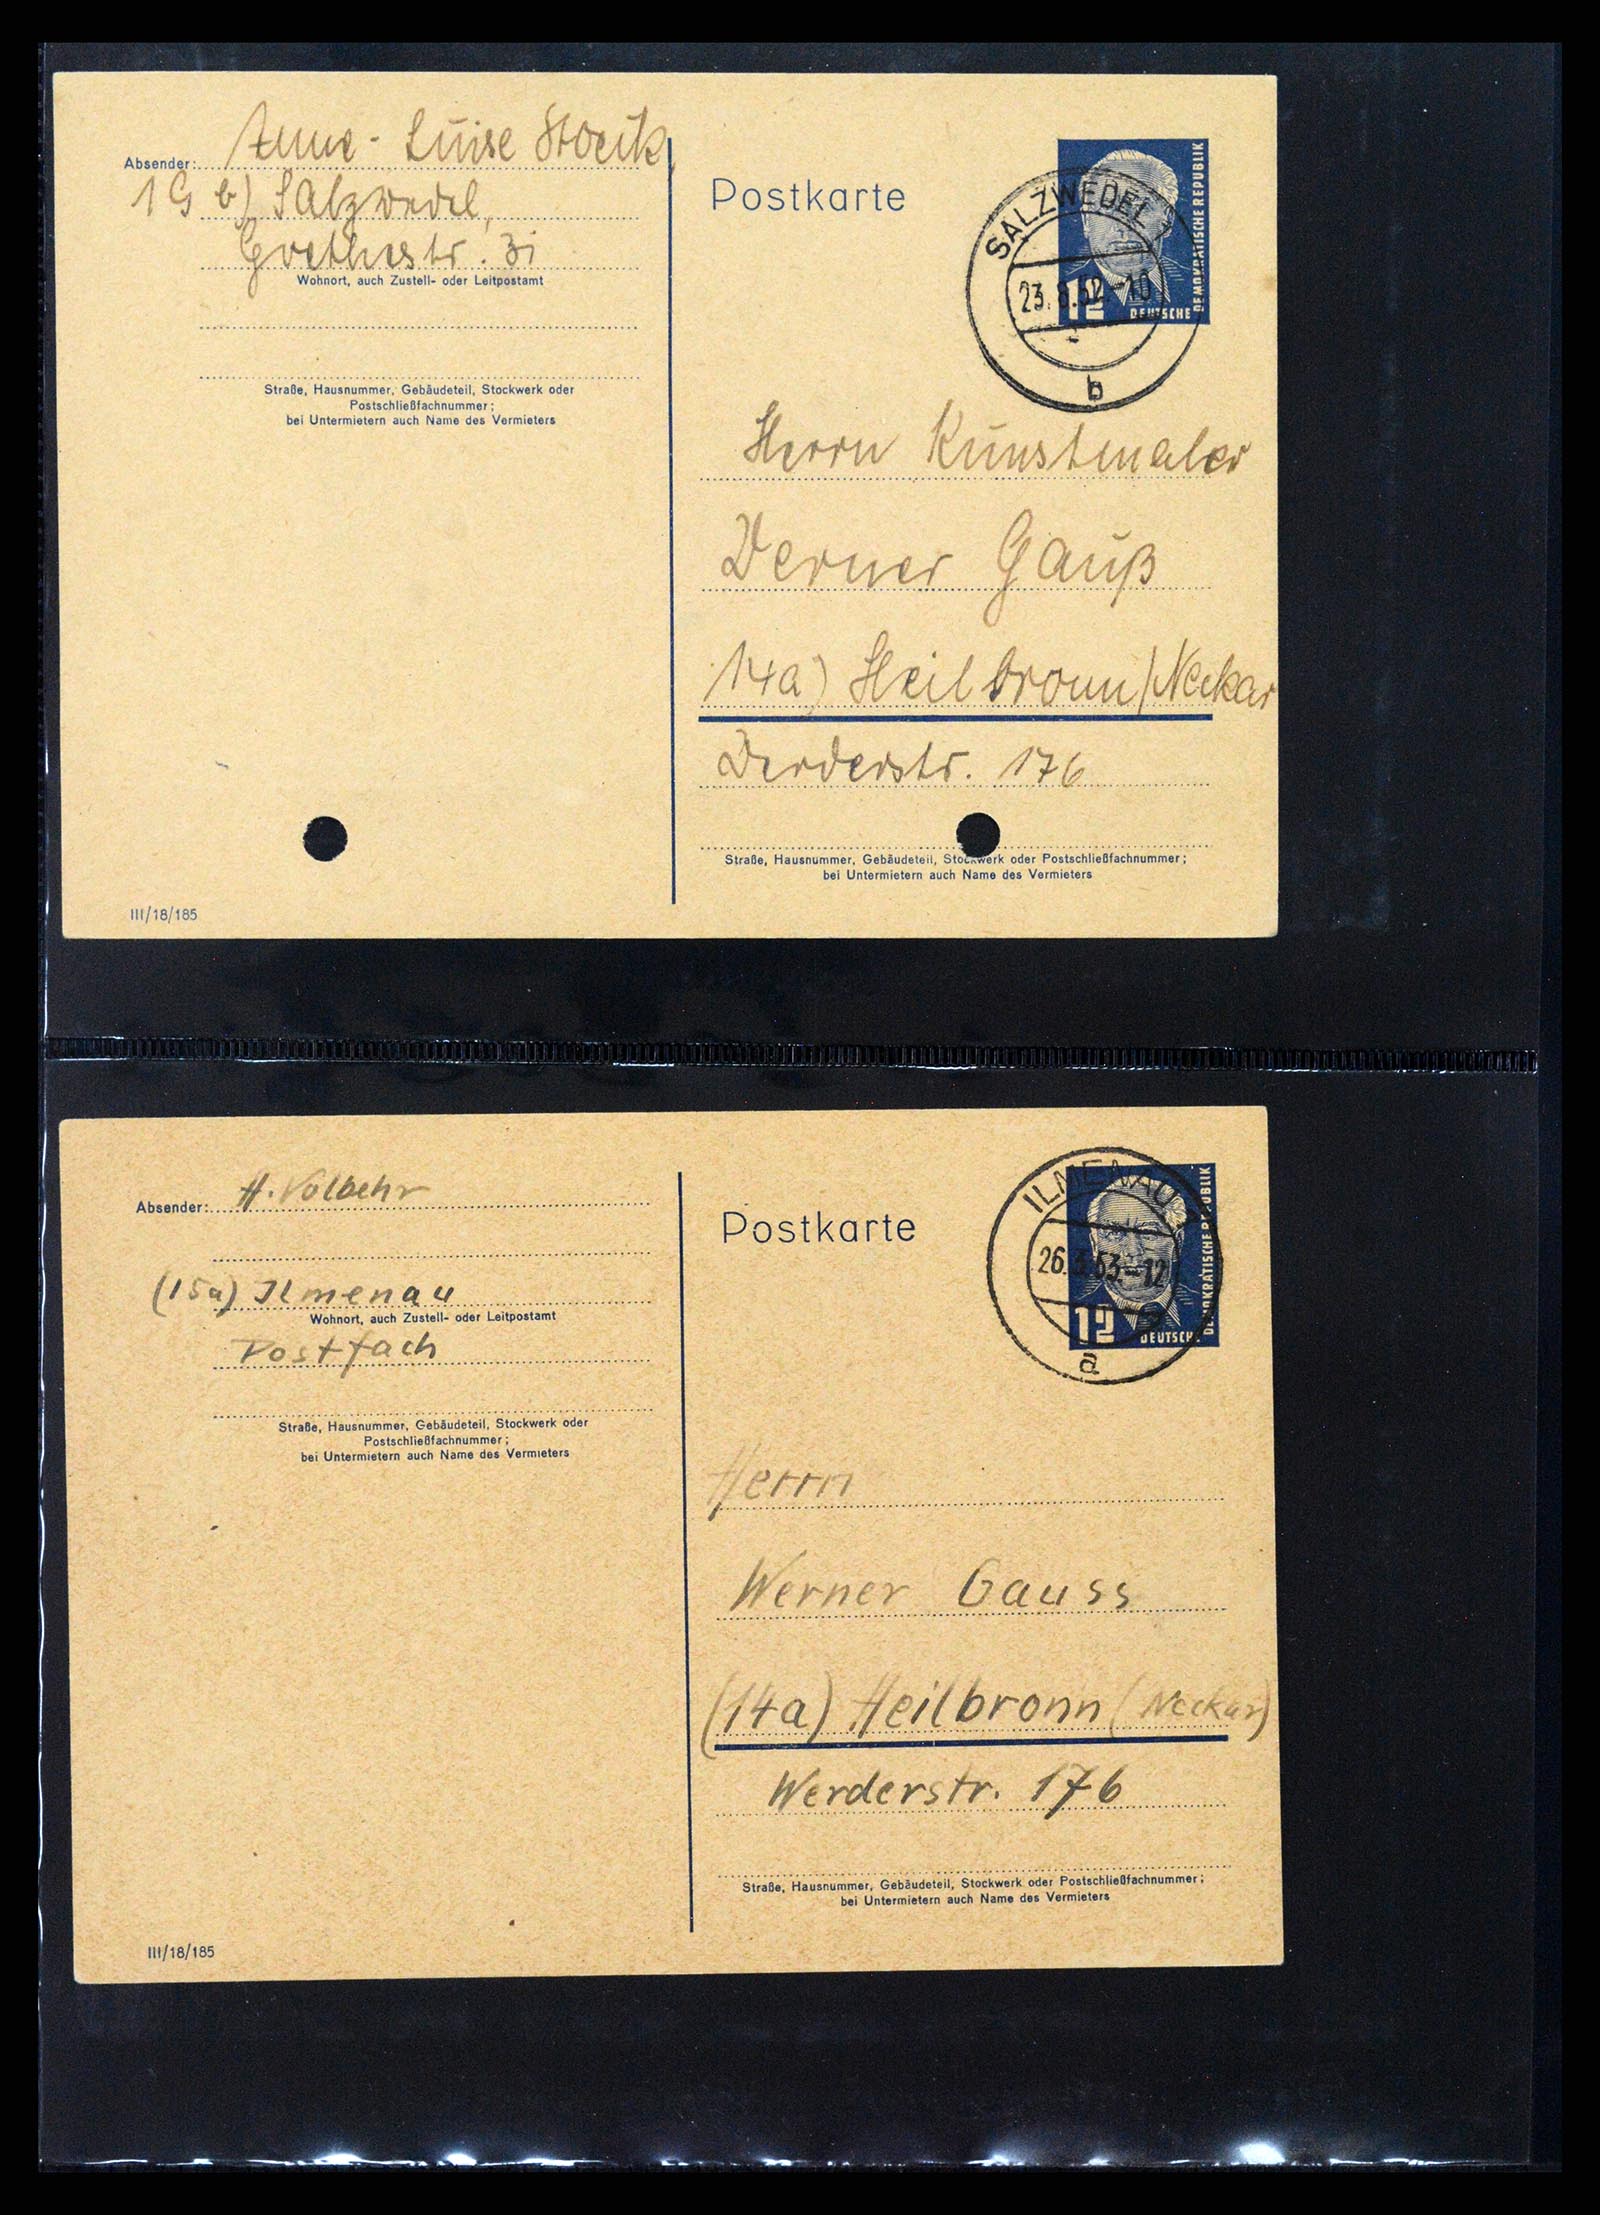 Absender: Anne-Luise Stock,
Salzwedel,
Goethestr. 31
Wohnort, auch Zustell- oder Leitpostamt
Straße, Hausnummer, Gebäudeteil, Stockwerk oder
Postschließfachnummer;
bei Untermietern auch Name des Vermieters
III/18/185
Postkarte
12
DEUTSCHE
DEMOKRATISCHE REPUBLIK
SALZWEDEL
b
Herrn Kunstmaler
Werner Gauß
14a) Heilbronn/Neckar
Werderstr. 176
Straße, Hausnummer, Gebäudeteil, Stockwerk oder Postschließfachnummer;
bei Untermietern auch Name des Vermieters
Absender: H. Volbehr
(15a) Ilmenau
Wohnort, auch Zustell- oder Leitpostamt
Postfach
Straße, Hausnummer, Gebäudeteil, Stockwerk oder
Postschließfachnummer;
bei Untermietern auch Name des Vermieters
III/18/185
Postkarte
12
DEUTSCHE
DEMOKRATISCHE REPUBLIK
ILMENAU
a
Herrn
Werner Gauss
(14a) Heilbronn (Neckar)
Werderstr. 176
Straße, Hausnummer, Gebäudeteil, Stockwerk oder Postschließfachnummer;
bei Untermietern auch Name des Vermieters